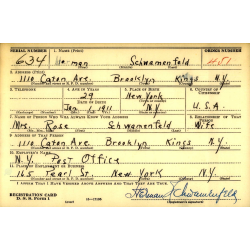 SERIAL NUMBER 1. NAME (Print) ORDER NUMBER
634 Herman Schwamenfeld 451
2. ADDRESS (Print)
1110 Caton Ave. Brooklyn Kings N.Y.
3. TELEPHONE 4. AGE IN YEARS 5. PLACE OF BIRTH 6. COUNTRY OF CITIZENSHIP
29 New York
DATE OF BIRTH
Jan. 1, 1911 N.Y. U.S.A.
7. NAME OF PERSON WHO WILL ALWAYS KNOW YOUR ADDRESS 8. RELATIONSHIP OF THAT PERSON
Mrs. Rose Schwamenfeld Wife
9. ADDRESS OF THAT PERSON
1110 Caton Ave. Brooklyn Kings N.Y.
10. EMPLOYER'S NAME
N.Y. Post Office
11. PLACE OF EMPLOYMENT OR BUSINESS
165 Pearl St. New York N.Y.
I AFFIRM THAT I HAVE VERIFIED ABOVE ANSWERS AND THAT THEY ARE TRUE.
REGISTRATION CARD
D. S. S. Form 1
Herman Schwamenfeld